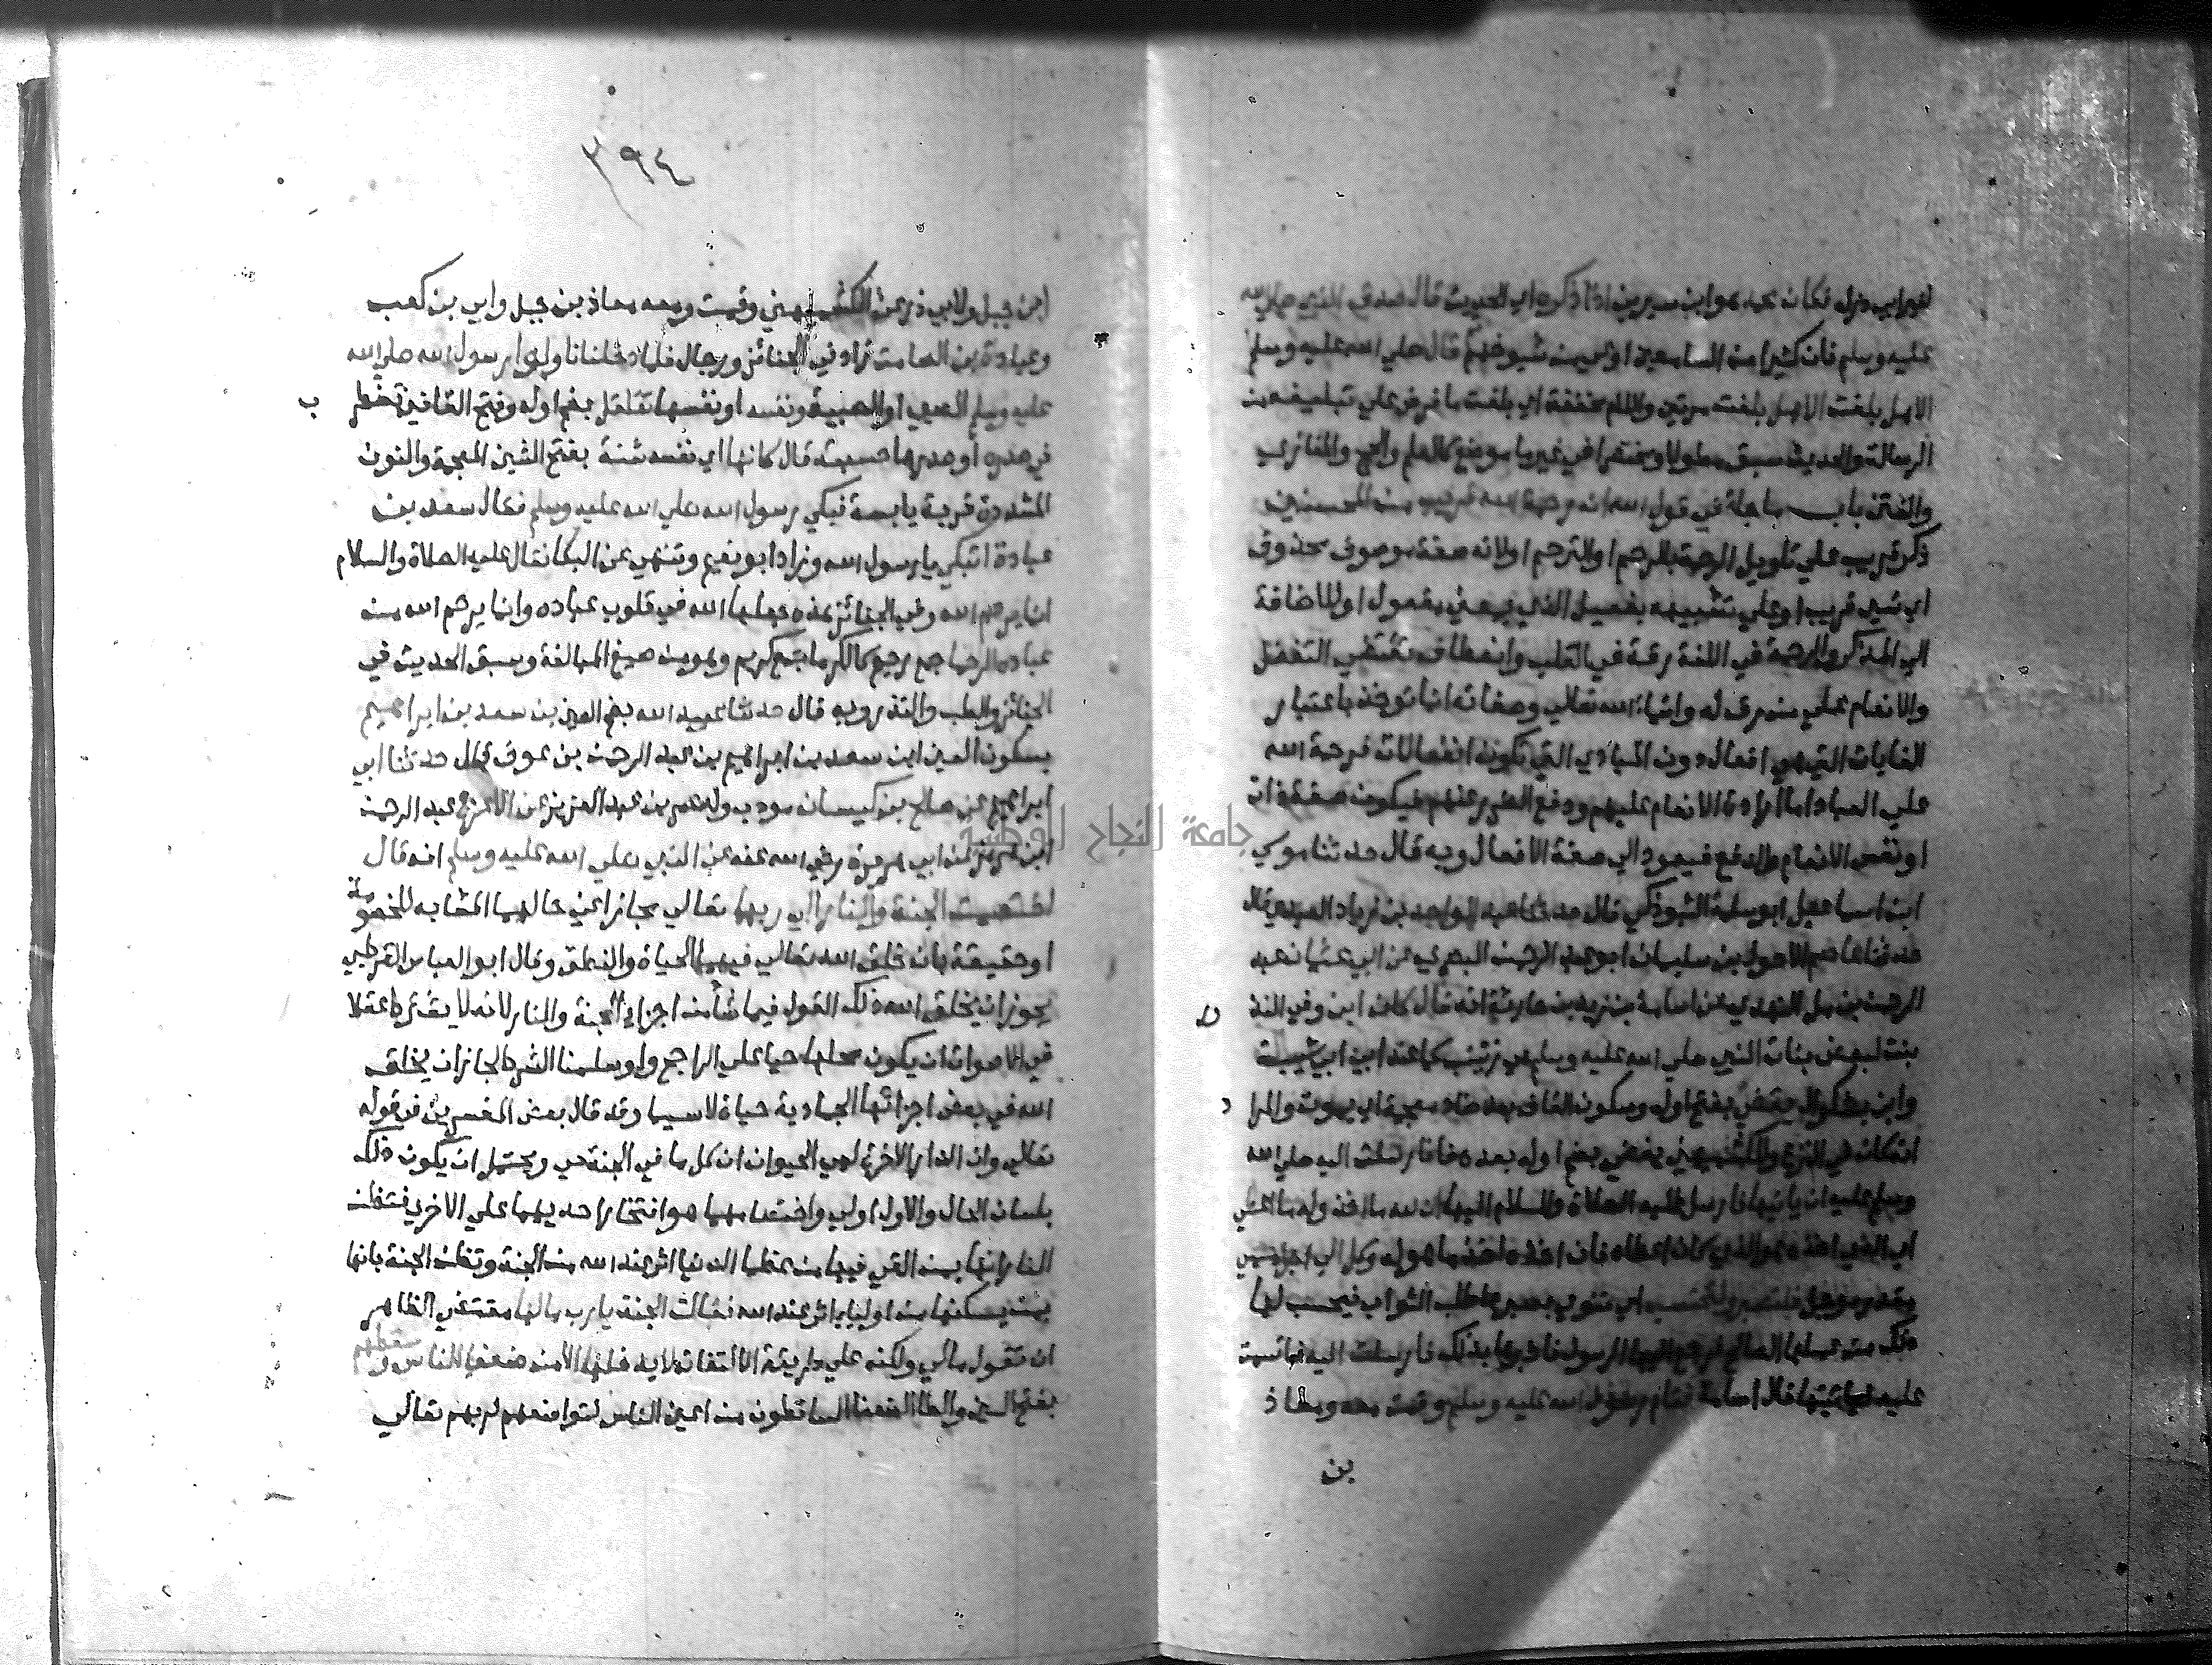 لغير ابي ذر قال فكان محمد هو ابن سيرين اذا ذكره اي الحديث قال صدق النبي صلى الله
عليه وسلم فان كثيرا من السامعين اوعى من شيوخهم قال صلى الله عليه وسلم
الاهل بلغت الاهل بلغت مرتين واللام مخففة اي بلغت ما فرض علي تبليغه من
الرسالة والحديث سبق مطولا ومختصرا في غير ما موضع كالعلم والحج والمغازي
والفتن باب ما جاء في قول الله ان رحمة الله قريب من المحسنين
ذكر قريب علي تاويل الرحمة بالرحم او الترحم او لانه صفة موصوف محذوف
اي شيء قريب او علي تشبيهه بفعيل الذي بمعني مفعول او للاضافة
الي المذكر والرحمة في اللغة رقة في القلب وانعطاف تقتضي التفضل
والانعام علي من رق له واسماء الله تعالي وصفاته انما توخذ باعتبار
الغايات التي هي افعال دون المبادي التي تكون انفعالات فرحمة الله
علي العباد اما ارادة الانعام عليهم ودفع الضرر عنهم فيكون صفة ذات
او نفس الانعام والدفع فيعود الي صفة الافعال وبه قال حدثنا موسي
ابن اسماعيل ابو سلمة التبوذكي قال حدثنا عبد الواحد بن زياد العبدي قال
حدثنا عاصم الاحول بن سليمان ابو عبد الرحمن البصري عن ابي عثمان عبد
الرحمن بن مل النهدي عن اسامة بن زيد بن حارثة انه قال كان ابن وفي النذ
بنت لبعض بنات النبي صلي الله عليه وسلم هي زينب كما عند ابن ابي شيبة
وابن بشكوال يقضي بفتح اوله وسكون القاف بعدها ضاد معجمة اي يموت والمرا
انه كان في النزع وللكشميهني يفضي بضم اوله بعده فا فارسلت اليه صلي الله
وسلم عليه ان ياتيها فارسل عليه الصلاة والسلام اليها ان لله ما اخذ وله ما اعطي
اي الذي اخذه هو الذي كان اعطاه فان اخذه اخذ ما هو له وكل الي اجل مسمي
مقدر موجل فلتصبر ولتحتسب اي تنوي بصبرها طلب الثواب فيحسب لها
ذلك من عملها الصالح فرجع اليها الرسول فاخبرها بذلك فارسلت اليه فاقسمت
عليه لياتينها قال اسامة فقام رسول الله عليه وسلم وقمت معه ومعاذ
بن
٣٩٤
ابن جبل ولابي ذر عن الكشميهني وقمت ومعه معاذ بن جبل وابي بن كعب
وعبادة بن الصامت زاد في الجنائز ورجال فلما دخلنا ناولوا رسول الله صلي الله
عليه وسلم الصبي او الصبية ونفسه او نفسها تقلقل بضم اوله وفتح القافين تضطرب
في صدره او صدرها حسبته قال كانها اي نفسه شنة بفتح الشين المعجمة والنون
المشددة قربة يابسة فبكي رسول الله صلي الله عليه وسلم فقال سعد بن
عبادة اتبكي يا رسول الله وزاد ابو نعيم وتنهي عن البكا فقال عليه الصلاة والسلام
انما يرحم الله وفي الجنائز هذه جعلها الله في قلوب عباده وانما يرحم الله من
عباده الرحما جمع رحيم كالكرما جمع كريم وهو من صيغ المبالغة وسبق الحديث في
الجنائز والطب والنذر وبه قال حدثنا عبيد الله بضم العين بن سعد بن ابراهيم
بسكون العين ابن سعد بن ابراهيم بن عبد الرحمن بن عوف قال حدثنا ابي
ابراهيم عن صالح بن كيسان مودب ولد عمر بن عبد العزيز عن الاعرج عبد الرحمن
ابن هرمز عن ابي هريرة رضي الله عنه عن النبي صلي الله عليه وسلم انه قال
اختصمت الجنة والنار الي ربهما تعالي مجازا عن حالهما المشابه للخصومة
او حقيقة بان خلق الله تعالي فيهما الحياة والنطق وقال ابو العباس القرطبي
يجوز ان يخلق الله ذلك القول فيما شا من اجزاء الجنة والنار لانه لا يشترط عقلا
في الاصوات ان يكون محلها حيا علي الراجح ولو سلمنا الشرط لجاز ان يخلق
الله في بعض اجزائها الجمادية حياة لا سيما وقد قال بعض المفسرين في قوله
تعالي وان الدار الاخرة لهي الحيوان ان كل ما في الجنة حي ويحتمل ان يكون ذلك
بلسان الحال والاول اولي واختصامهما هو افتخار احديهما علي الاخري فتظن
النار انها بمن القي فيها من عظما الدنيا اثر عند الله من الجنة وتظن الجنة بانها
بمن يسكنها من اوليا الله اثر عند الله فقالت الجنة يا رب مالها مقتضي الظاهر
ان تقول مالي ولكنه علي طريقة الالتفات لا يدخلها الا من ضعفا الناس وسقطهم
بفتح السين والطا الضعفا الساقطون من اعين الناس لتواضعهم لربهم تعالي
جامعة النجاح الوطنية